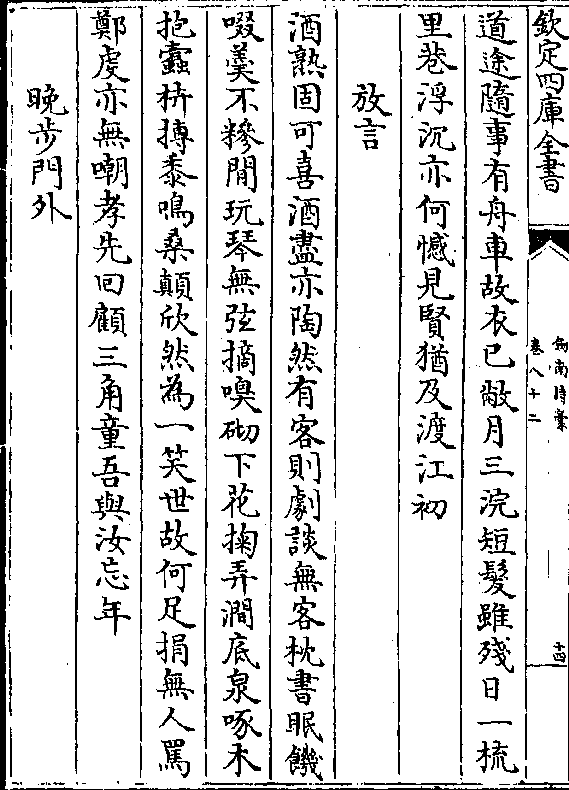 欽定四庫全書
劍南詩藁
卷八十二
十四
道途隨事有舟車故衣已敝月三浣短髮雖殘日一梳
里巷浮沉亦何憾見賢猶及渡江初
放言
酒熟固可喜酒盡亦陶然有客則劇談無客枕書眠饑
啜羹不糝閒玩琴無弦摘嗅砌下花掬弄澗底泉啄木
抱蠧枿搏黍鳴桑顛欣然為一笑世故何足捐無人罵
鄭虔亦無嘲孝先回顧三角童吾與汝忘年
晚步門外